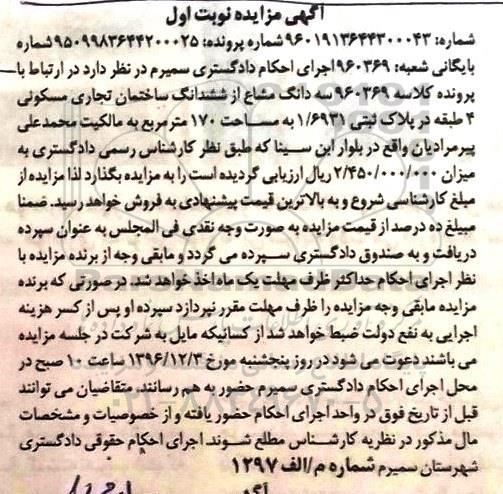 آگهی مزایده نوبت اول
شماره: ۹۶۰۱۹۱۳۶۴۴۳۰۰۰۴۳ شماره پرونده: ۹۵۰۹۹۸۳۶۴۴۲۰۰۰۲۵ شماره
بایگانی شعبه: ۹۶۰۳۶۹ اجرای احکام دادگستری سمیرم در نظر دارد در ارتباط با
پرونده کلاسه ۹۶۰۳۶۹ سه دانگ مشاع از ششدانگ ساختمان تجاری مسکونی
۴ طبقه در پلاک ثبتی ۱/۶۹۳۱ به مساحت ۱۷۰ متر مربع به مالکیت محمدعلی
پیرمرادیان واقع در بلوار ابن سینا که طبق نظر کارشناس رسمی دادگستری به
میزان ۲/۴۵۰/۰۰۰/۰۰۰ ریال ارزیابی گردیده است را به مزایده بگذارد لذا مزایده از
مبلغ کارشناسی شروع و به بالاترین قیمت پیشنهادی به فروش خواهد رسید. ضمنا
مبیلغ ده درصد از قیمت مزایده به صورت وجه نقدی فی المجلس به عنوان سپرده
دریافت و به صندوق دادگستری سپرده می گردد و مابقی وجه از برنده مزایده با
نظر اجرای احکام حداکثر ظرف مهلت یک ماه اخذ خواهد شد. در صورتی که برنده
مزایده مابقی وجه مزایده را ظرف مهلت مقرر نپردازد سپرده او پس از کسر هزینه
اجرایی به نفع دولت ضبط خواهد شد از کسانیکه مایل به شرکت در جلسه مزایده
می باشند دعوت می شود در روز پنجشنبه مورخ ۱۳۹۶/۱۲/۳ ساعت ۱۰ صبح در
محل اجرای احکام دادگستری سمیرم حضور به هم رسانند، متقاضیان می توانند
قبل از تاریخ فوق در واحد اجرای احکام حضور یافته و از خصوصیات و مشخصات
مال مذکور در نظریه کارشناس مطلع شوند. اجرای احکام حقوقی دادگستری
شهرستان سمیرم شماره م/الف ۱۲۹۷